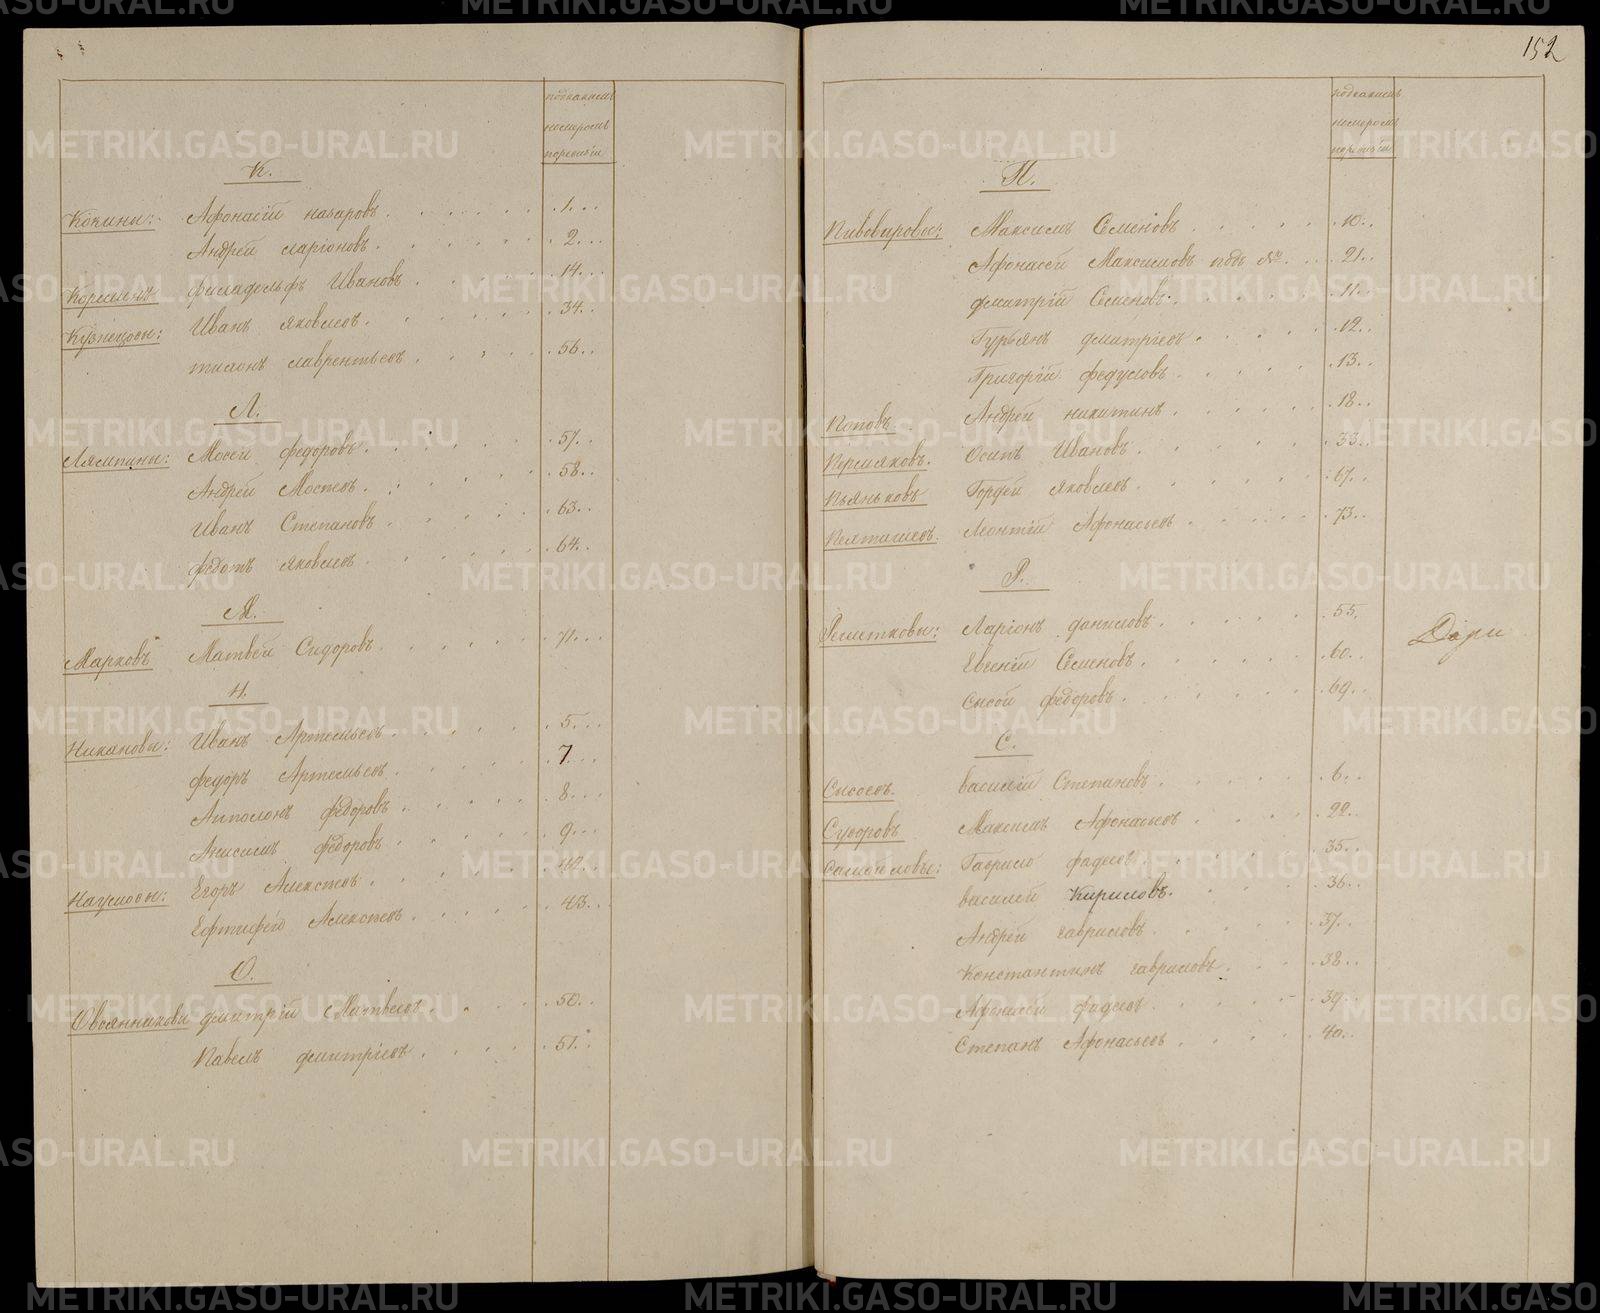 подкакимъ
номеромъ
поревизiи
К.
Кокины: Афонасiй назаровъ 1.
Андрей ларiоновъ 2.
филадельфъ Ивановъ 14.
Кузнецовы: Иванъ яковлевъ 34.
тихонъ лаврентьевъ 56.
Л.
Лямпины: Мосей федоровъ 57.
Андрей Мосеевъ 58.
Иванъ Степановъ 63.
федотъ яковлевъ 64.
М.
Марковъ Матвей Сидоровъ 71.
Н.
Никановы: Иванъ Артемьевъ 5.
федоръ Артемьевъ 7.
Аполонъ федоровъ 8.
Анисимъ федоровъ 9.
Наумовы: Егоръ Алексеевъ
Ефтифей Алексеевъ 43.
О.
Овсянниковы дмитрiй Матвеевъ 50.
Павелъ дмитрiевъ 51.
152
подкакимъ
номеромъ
поревизiи
П.
Пивоваровы: Максимъ Семеновъ 10.
Афонасей Максимовъ подъ № 21.
дмитрiй Семеновъ 11.
Гурьянъ дмитрiевъ 12.
Григорiй федуловъ 13.
Поповъ Андрей никитинъ 18.
Пермяковъ. Осипъ Ивановъ 33.
Пьяньковъ Гордей яковлевъ 67.
Пелтышевъ. Леонтiй Афонасьевъ 73.
Р.
Решетковы: Ларiонъ даниловъ 55.
Евгенiй Семеновъ 60.
Сысой федоровъ 69.
С.
Сысоевъ. василiй Степановъ 6.
Суворовъ Максимъ Афонасьевъ 22.
Самойловы: Гаврило фадеевъ 35.
василей Кириловъ. 36.
Андрей гавриловъ 37.
Константинъ гавриловъ 38.
Афонасей фадеевъ 39.
Степанъ Афонасьевъ 40.